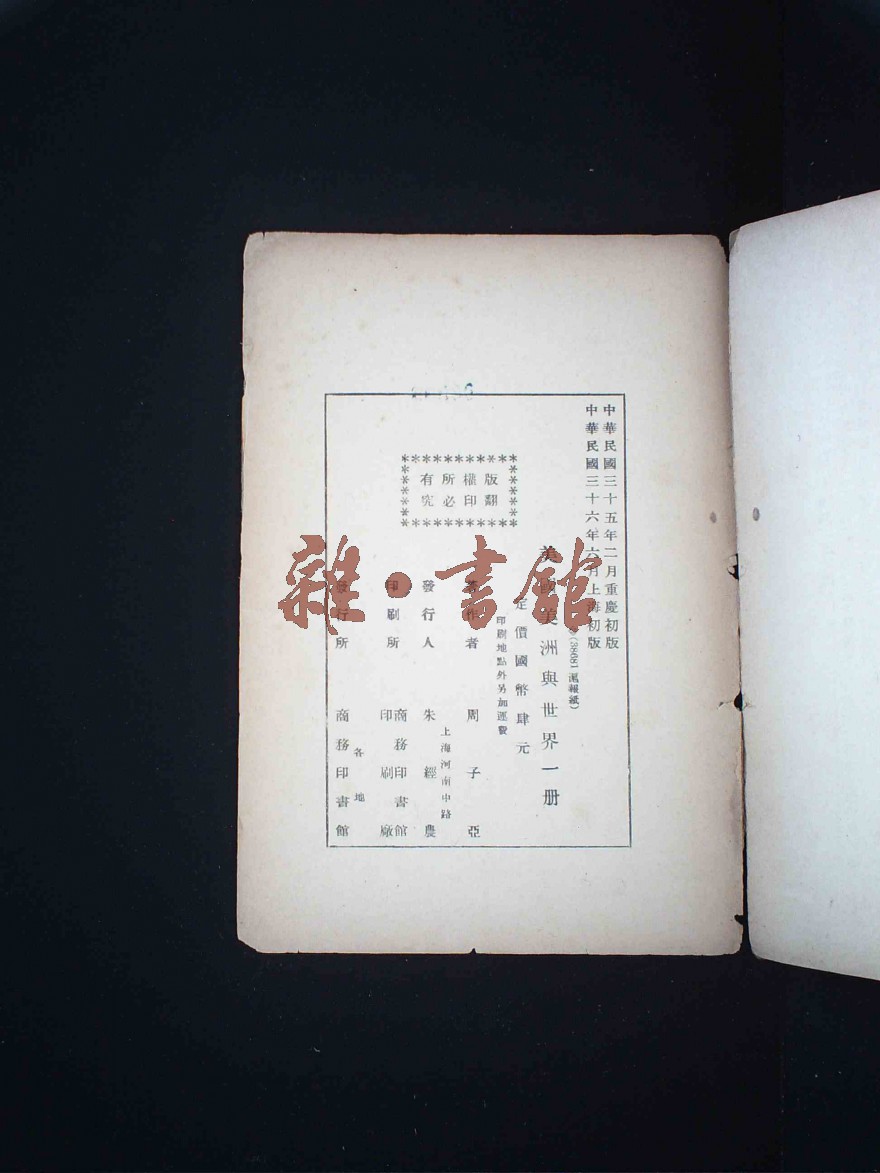 中華民國三十五年二月重慶初版
中華民國三十六年六月上海初版
(38681 滬報紙)
美國美洲與世界一册
定價國幣肆元
印刷地點外另加運費
版權所有
翻印必究
著作者 周子亞
上海河南中路
發行人 朱經農
印刷所 商務印書館
印刷廠
各地
發行所 商務印書館
雜·書館